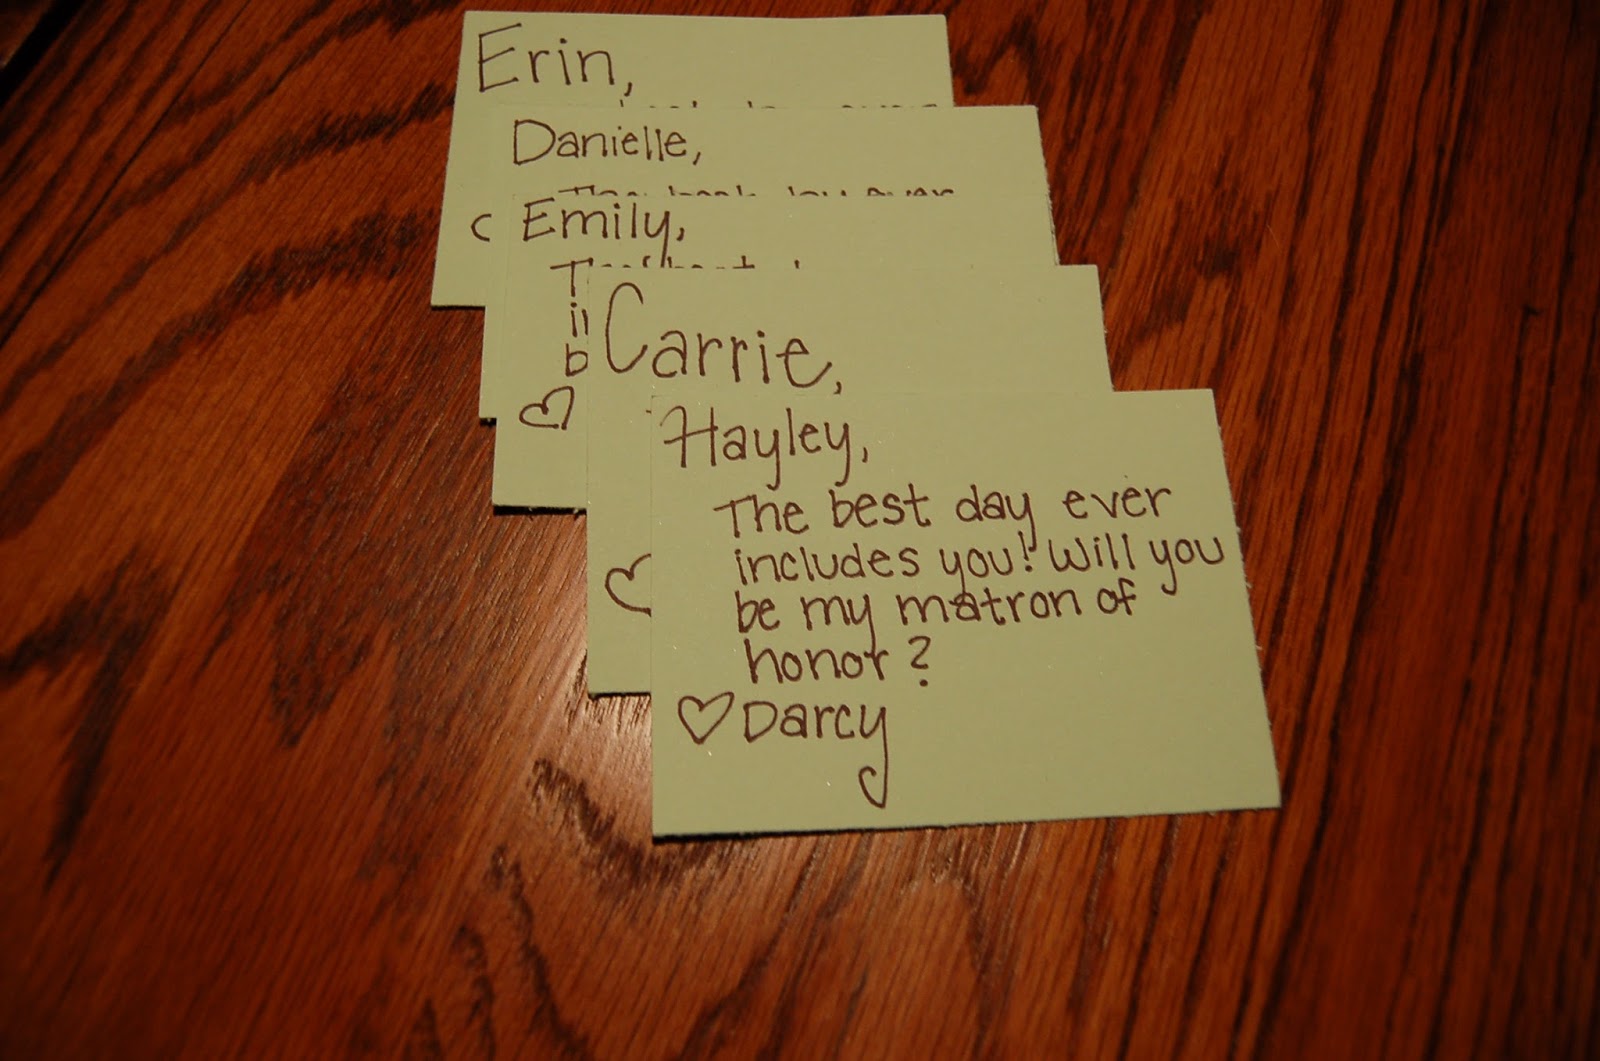 Erin,
Danielle,
The best day ever
Emily,
The best
b
Carrie,
Hayley,
The best day ever
includes you! Will you
be my matron of
honor?
♡ Darcy